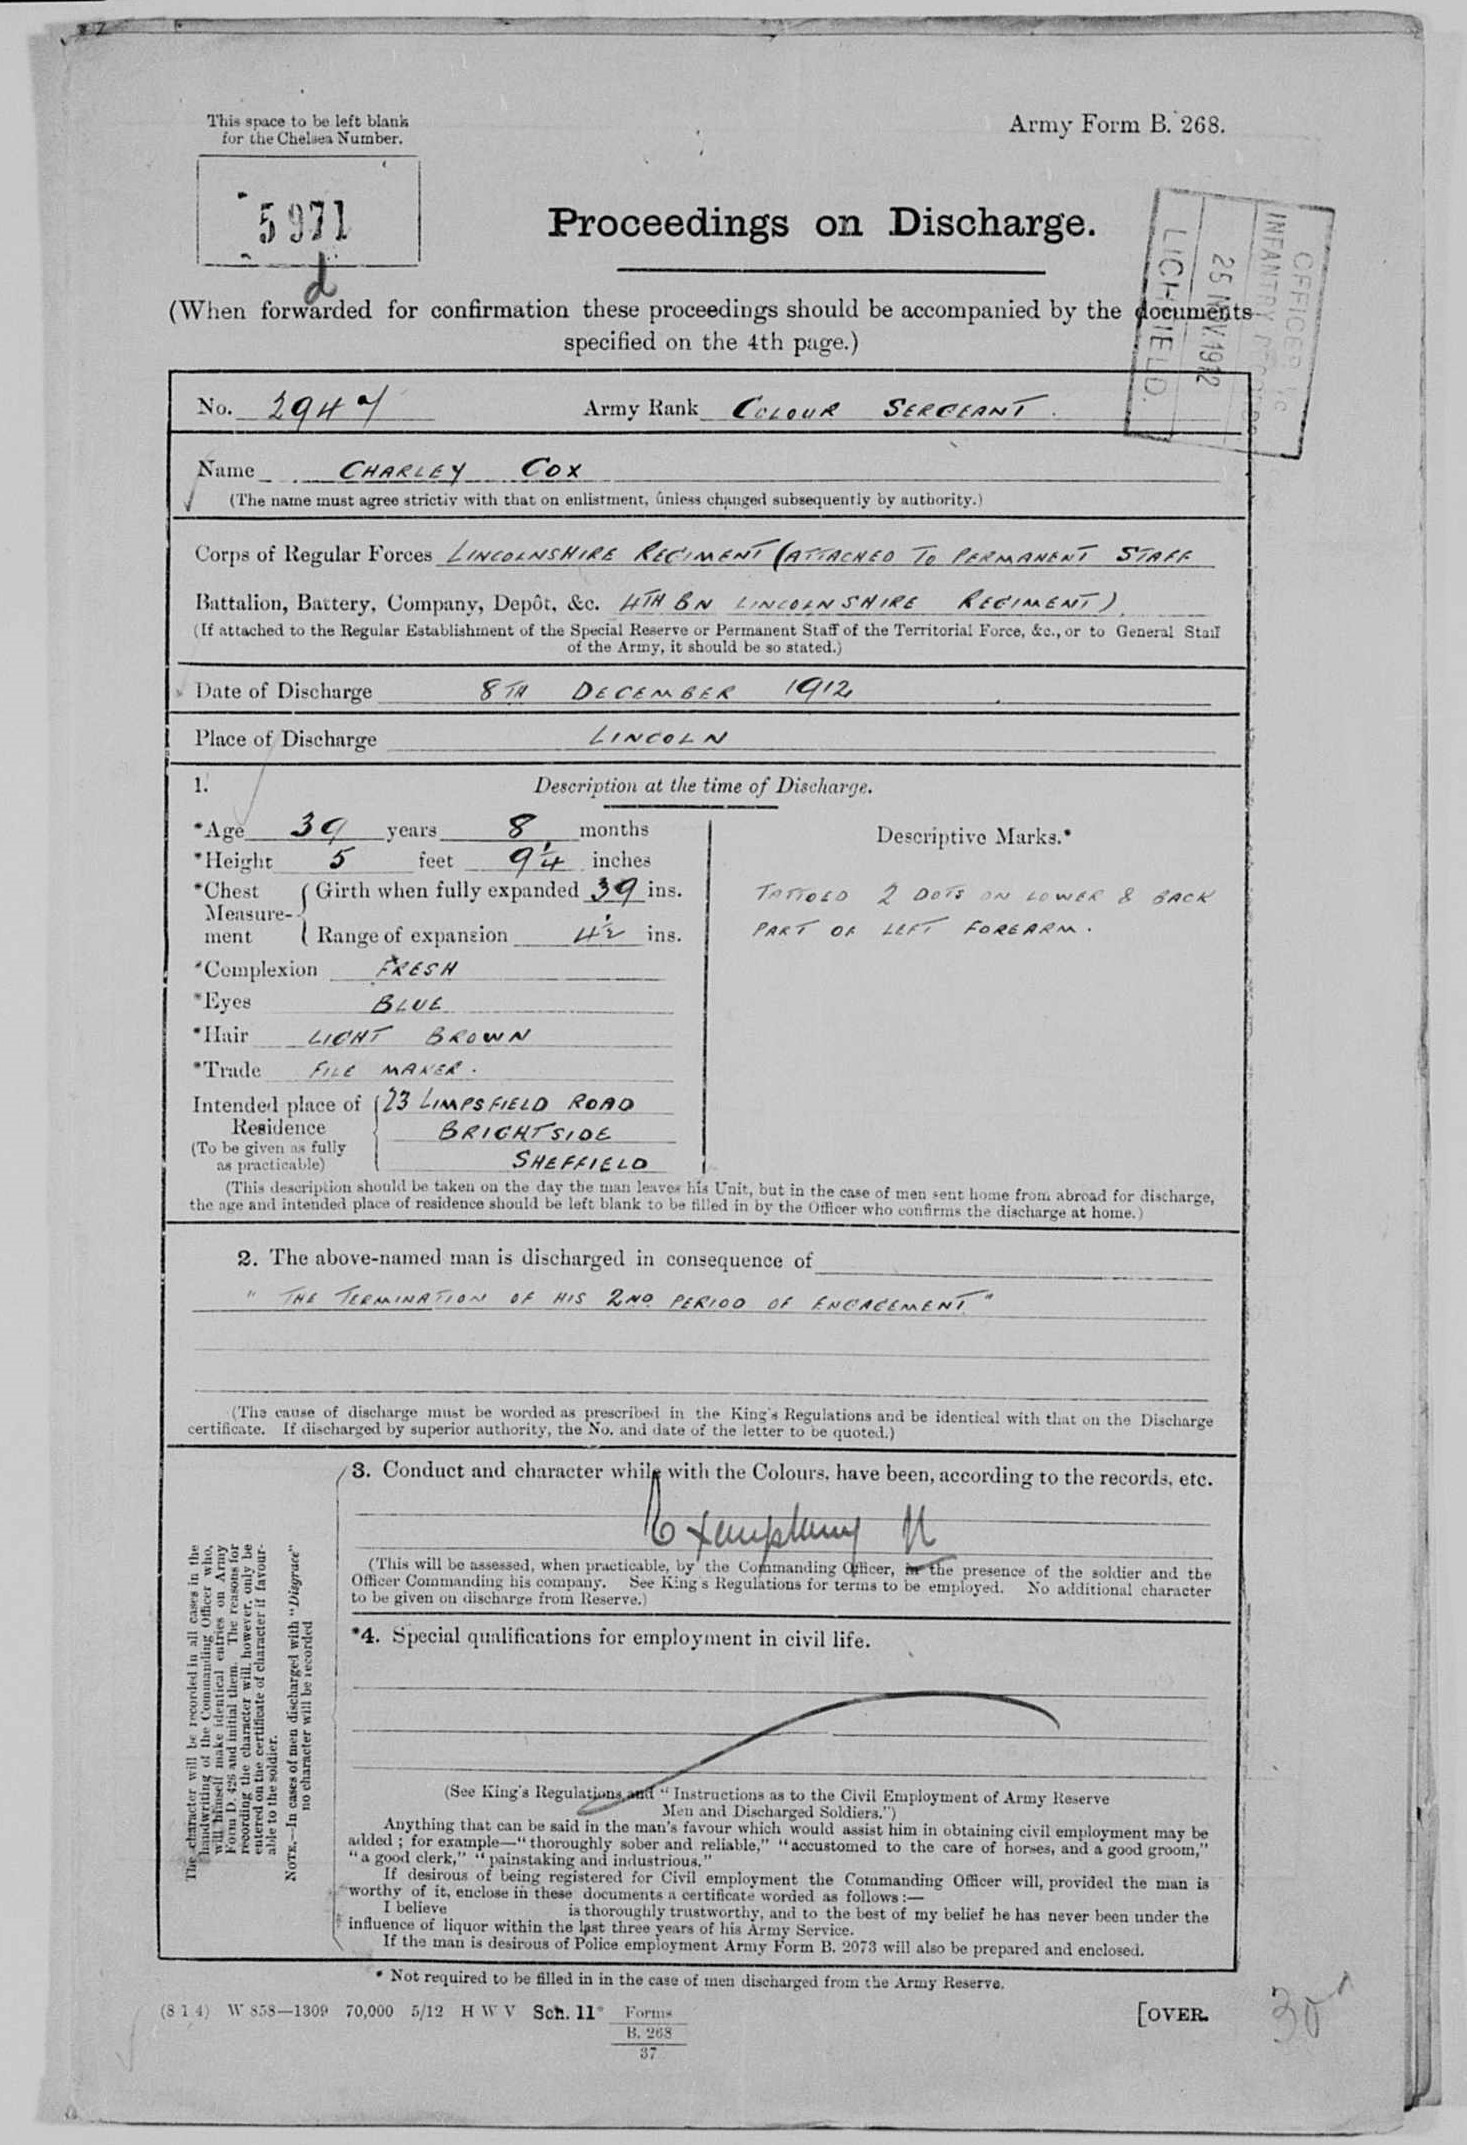 This space to be left blank
for the Chelsea Number.
Army Form B. 268.
5971
d
Proceedings on Discharge.
OFFICER I/C
INFANTRY RECORDS
25 NOV. 1912
LICHFIELD.
(When forwarded for confirmation these proceedings should be accompanied by the documents
specified on the 4th page.)
No. 2947 Army Rank COLOUR SERGEANT.
Name CHARLEY COX
(The name must agree strictly with that on enlistment, unless changed subsequently by authority.)
Corps of Regular Forces LINCOLNSHIRE REGIMENT (ATTACHED TO PERMANENT STAFF
Battalion, Battery, Company, Depôt, &c. 4TH BN LINCOLNSHIRE REGIMENT).
(If attached to the Regular Establishment of the Special Reserve or Permanent Staff of the Territorial Force, &c., or to General Staff
of the Army, it should be so stated.)
Date of Discharge 8TH DECEMBER 1912
Place of Discharge LINCOLN
1. Description at the time of Discharge.
*Age 39 years 8 months
*Height 5 feet 9¼ inches
*Chest Measurement { Girth when fully expanded 39 ins.
Range of expansion 4½ ins.
*Complexion FRESH
*Eyes BLUE
*Hair LIGHT BROWN
*Trade FILE MAKER.
Intended place of Residence { 23 LIMPSFIELD ROAD
BRIGHTSIDE
SHEFFIELD
(To be given as fully
as practicable)
Descriptive Marks.*
TATTOED 2 DOTS ON LOWER & BACK
PART OF LEFT FOREARM.
(This description should be taken on the day the man leaves his Unit, but in the case of men sent home from abroad for discharge,
the age and intended place of residence should be left blank to be filled in by the Officer who confirms the discharge at home.)
2. The above-named man is discharged in consequence of
"THE TERMINATION OF HIS 2ND PERIOD OF ENGAGEMENT"
(The cause of discharge must be worded as prescribed in the King's Regulations and be identical with that on the Discharge
certificate. If discharged by superior authority, the No. and date of the letter to be quoted.)
The character will be recorded in all cases in the
handwriting of the Commanding Officer who,
will himself make identical entries on Army
Form D. 426 and initial them. The reasons for
recording the character will, however, only be
entered on the certificate of character if favour-
able to the soldier.
NOTE.—In cases of men discharged with "Disgrace"
no character will be recorded
3. Conduct and character while with the Colours, have been, according to the records, etc.
Exemplary
(This will be assessed, when practicable, by the Commanding Officer, in the presence of the soldier and the
Officer Commanding his company. See King's Regulations for terms to be employed. No additional character
to be given on discharge from Reserve.)
*4. Special qualifications for employment in civil life.
(See King's Regulations and "Instructions as to the Civil Employment of Army Reserve
Men and Discharged Soldiers.")
Anything that can be said in the man's favour which would assist him in obtaining civil employment may be
added; for example—"thoroughly sober and reliable," "accustomed to the care of horses, and a good groom,"
"a good clerk," "painstaking and industrious."
If desirous of being registered for Civil employment the Commanding Officer will, provided the man is
worthy of it, enclose in these documents a certificate worded as follows:—
I believe is thoroughly trustworthy, and to the best of my belief he has never been under the
influence of liquor within the last three years of his Army Service.
If the man is desirous of Police employment Army Form B. 2073 will also be prepared and enclosed.
* Not required to be filled in in the case of men discharged from the Army Reserve.
(8 1 4) W 858—1309 70,000 5/12 H W V Sch. 11 Forms
B. 268
37
[OVER.